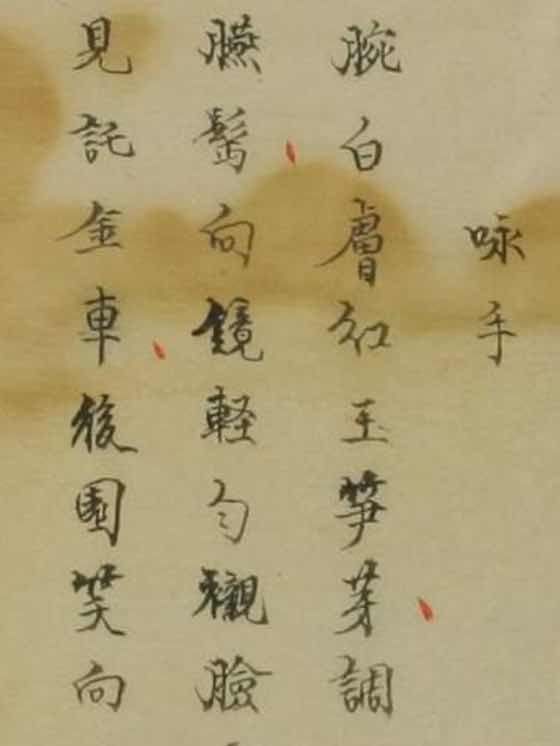 咏手
腕白膚紅玉笋芽調
臙鬢向鏡軽勻襯臉
見託金車後園笑向